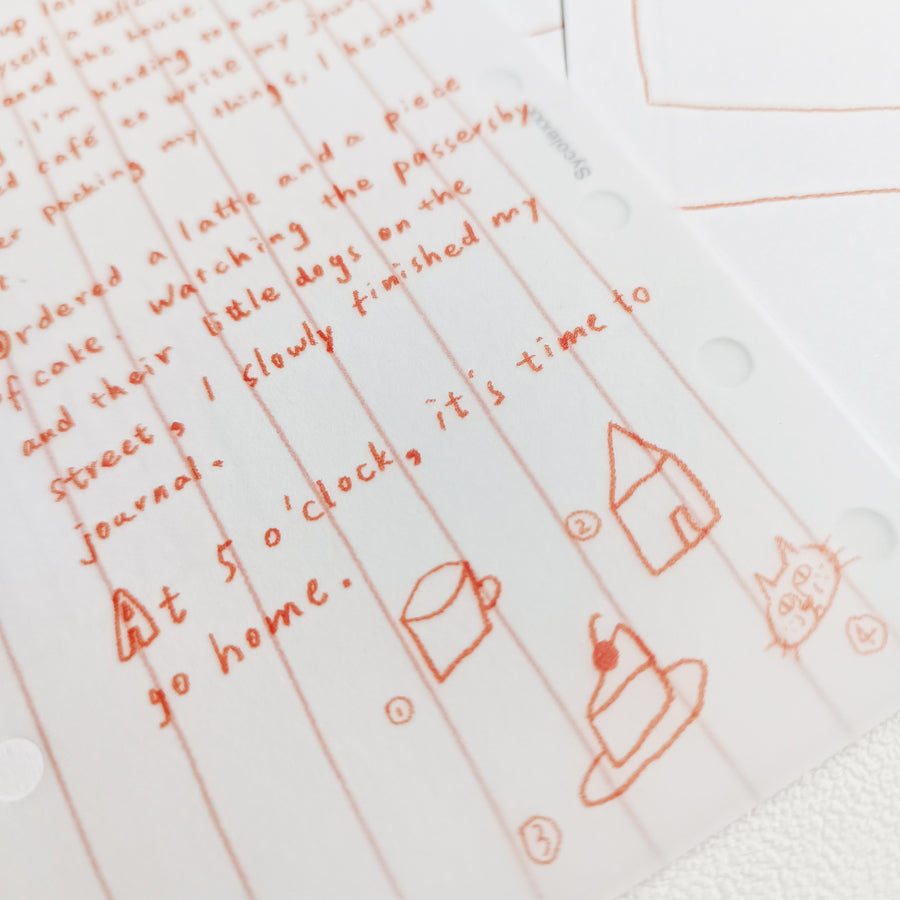 up
a
and the house.
I'm heading to a new
café to write my
packing my things, I headed
Ordered a latte and a piece
of cake. Watching the passersby
and their little dogs on the
street, I slowly finished my
journal.
At 5 o'clock, it's time to
go home.
①
②
③
④